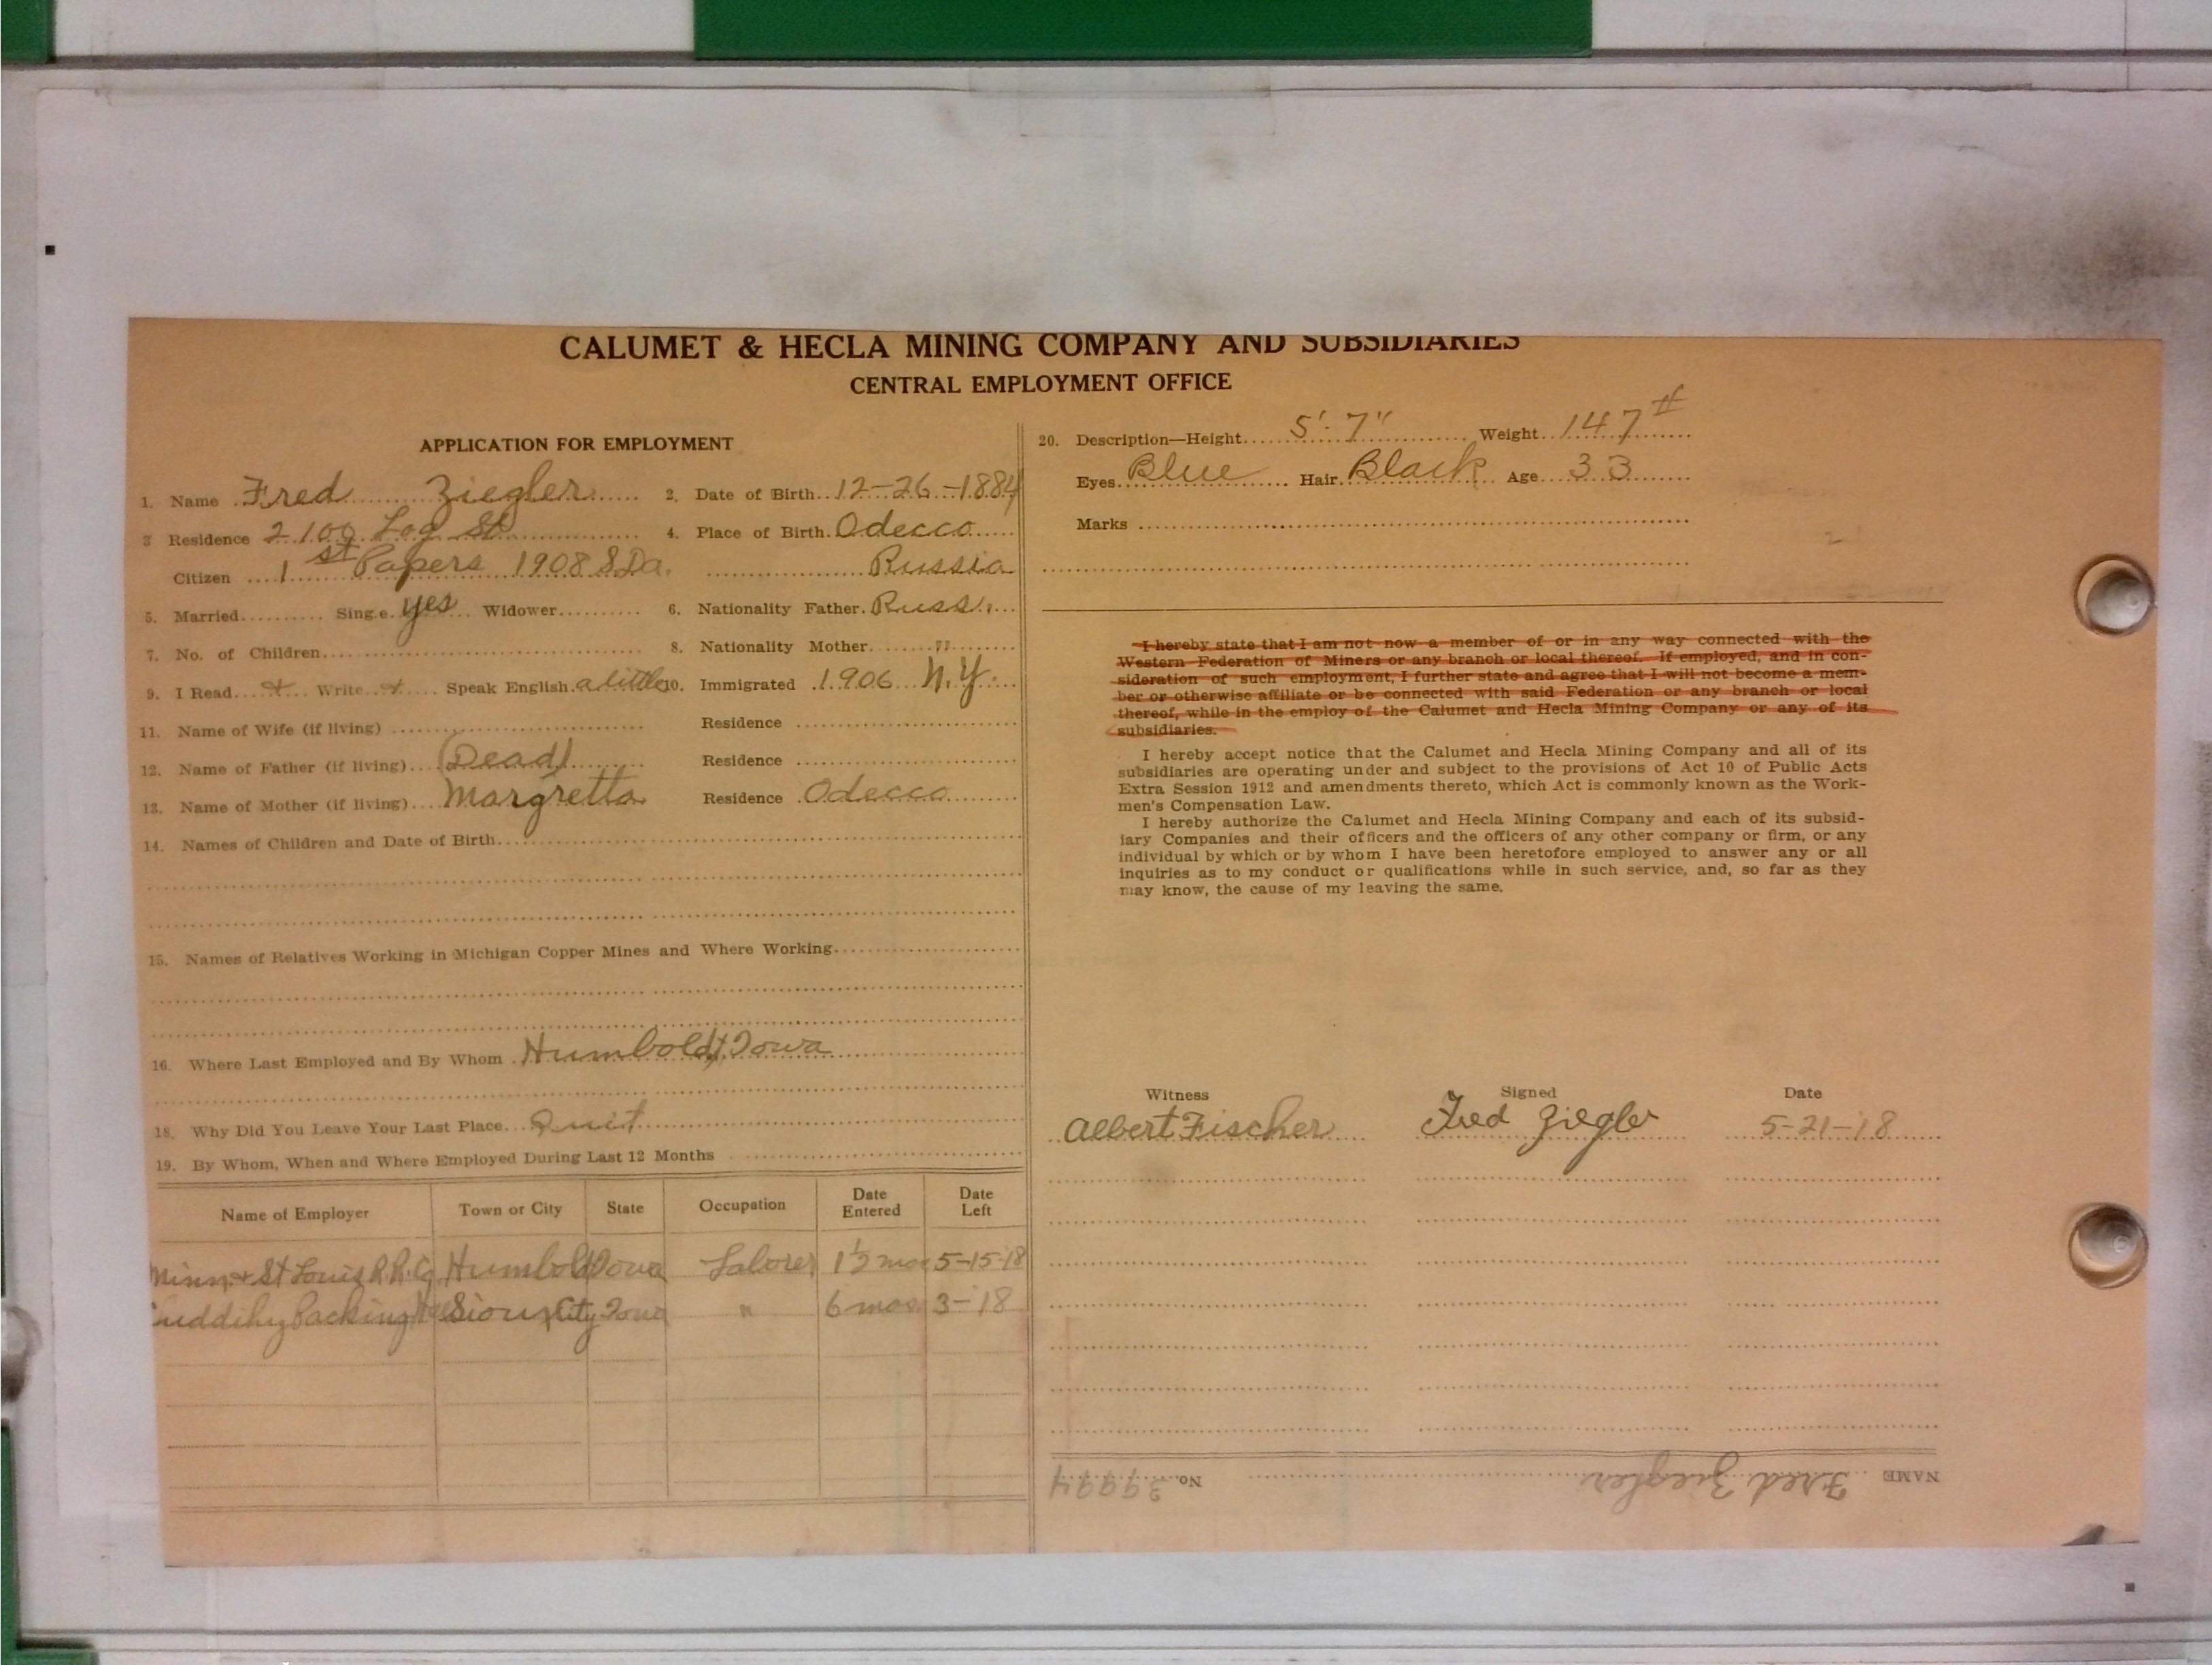 CALUMET & HECLA MINING COMPANY AND SUBSIDIARIES
CENTRAL EMPLOYMENT OFFICE
APPLICATION FOR EMPLOYMENT
1. Name Fred Ziegler 2. Date of Birth 12-26-1884
3 Residence 2109 Log St 4. Place of Birth Odecco
Citizen 1st Papers 1908 S.Da. Russia
5. Married Single yes Widower 6. Nationality Father Russ.
7. No. of Children 8. Nationality Mother "
9. I Read + Write + Speak English a little 10. Immigrated 1906 N.Y.
11. Name of Wife (if living) Residence
12. Name of Father (if living) (Dead) Residence
13. Name of Mother (if living) Margretta Residence Odecco
14. Names of Children and Date of Birth
15. Names of Relatives Working in Michigan Copper Mines and Where Working
16. Where Last Employed and By Whom Humboldt, Iowa
18. Why Did You Leave Your Last Place Quit
19. By Whom, When and Where Employed During Last 12 Months
Name of Employer Town or City State Occupation Date Entered Date Left
Minn. & St Louis R.R. Co Humboldt Iowa Laborer 1 1/2 mos 5-15-18
Cuddihy Packing Sioux City Iowa " 6 mos 3-18
20. Description—Height 5' 7" Weight 147#
Eyes Blue Hair Black Age 33
Marks
I hereby state that I am not now a member of or in any way connected with the
Western Federation of Miners or any branch or local thereof. If employed, and in con-
sideration of such employment, I further state and agree that I will not become a mem-
ber or otherwise affiliate or be connected with said Federation or any branch or local
thereof, while in the employ of the Calumet and Hecla Mining Company or any of its
subsidiaries.
I hereby accept notice that the Calumet and Hecla Mining Company and all of its
subsidiaries are operating under and subject to the provisions of Act 10 of Public Acts
Extra Session 1912 and amendments thereto, which Act is commonly known as the Work-
men's Compensation Law.
I hereby authorize the Calumet and Hecla Mining Company and each of its subsid-
iary Companies and their officers and the officers of any other company or firm, or any
individual by which or by whom I have been heretofore employed to answer any or all
inquiries as to my conduct or qualifications while in such service, and, so far as they
may know, the cause of my leaving the same.
Witness Signed Date
Albert Fischer Fred Ziegler 5-21-18
NAME Fred Ziegler No. 39994